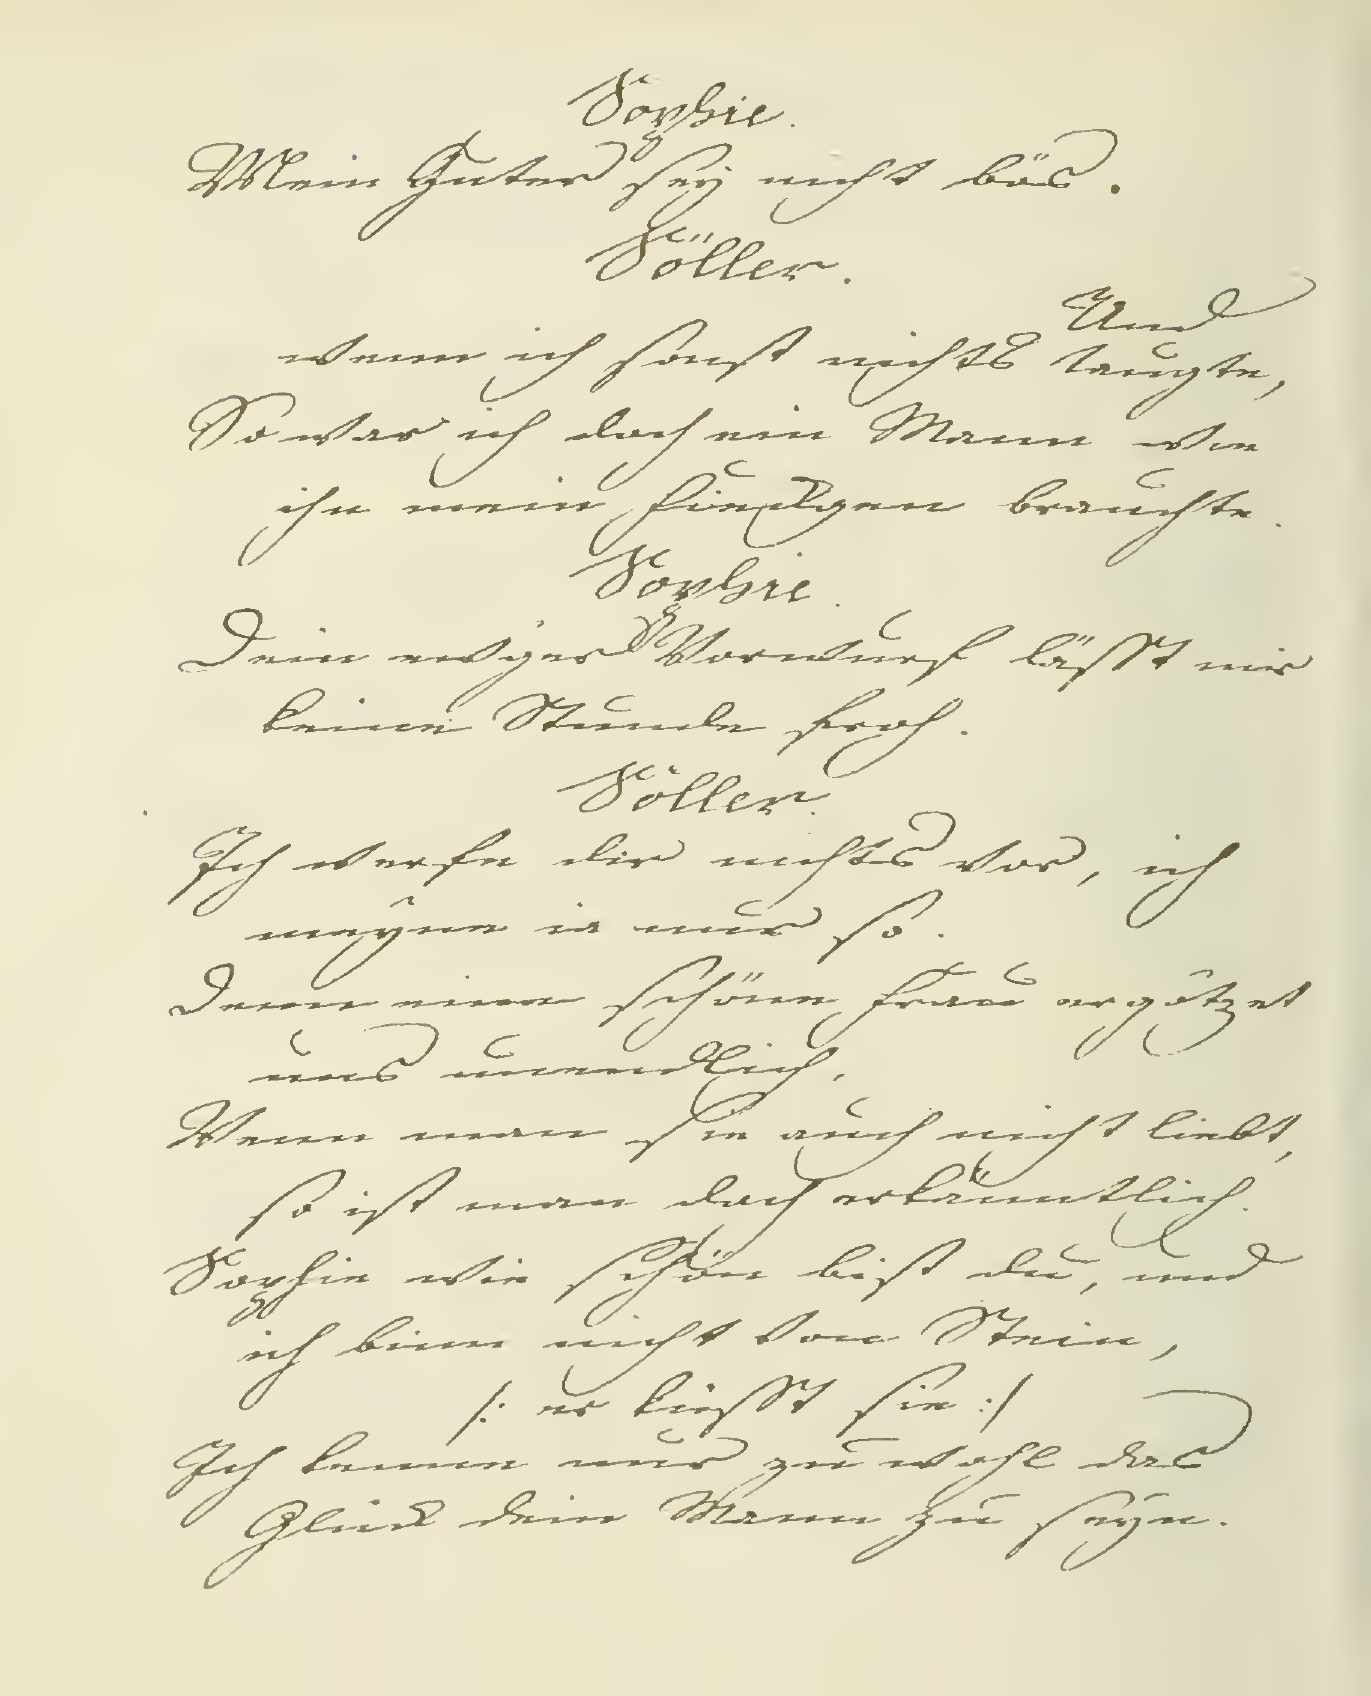 Sophie.
Mein Guter sey nicht bös.
Söller.
Und
wenn ich sonst nichts taugte,
So war ich doch ein Mann wie
ihn mein Fiekgen brauchte.
Sophie.
Dein ewger Vorwurf lässt mir
keine Stunde froh.
Söller.
Ich werfe dir nichts vor, ich
meyne ia nur so.
Denn eine schöne Frau ergötzet
uns unendlich,
Wenn man sie auch nicht liebt,
so ist man doch erkänntlich.
Sophie wie schön bist du, und
ich binn nicht von Stein,
/: er küsst sie :/
Ich kenne nur zu wohl das
Glück dein Mann zu seyn.